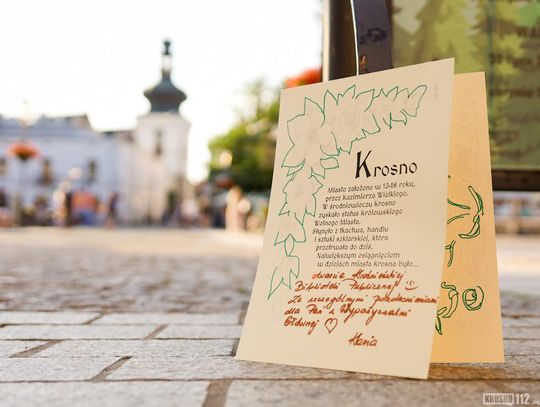 Krosno
Miasto założono w 1348 roku,
przez Kazimierza Wielkiego.
W średniowieczu krosno
zyskało status królewskiego
Wolnego Miasta.
Słynęło z tkactwa, handlu
i sztuki szklarskiej, która
przetrwała do dziś.
Największym osiągnięciem
w dziejach miasta krosna było...
Krośnieńskiej
Biblioteki Publicznej
Ze szczególnymi pozdrowieniami
dla Pań z Wypożyczalni
Głównej ♡
Hania
KROSNO112